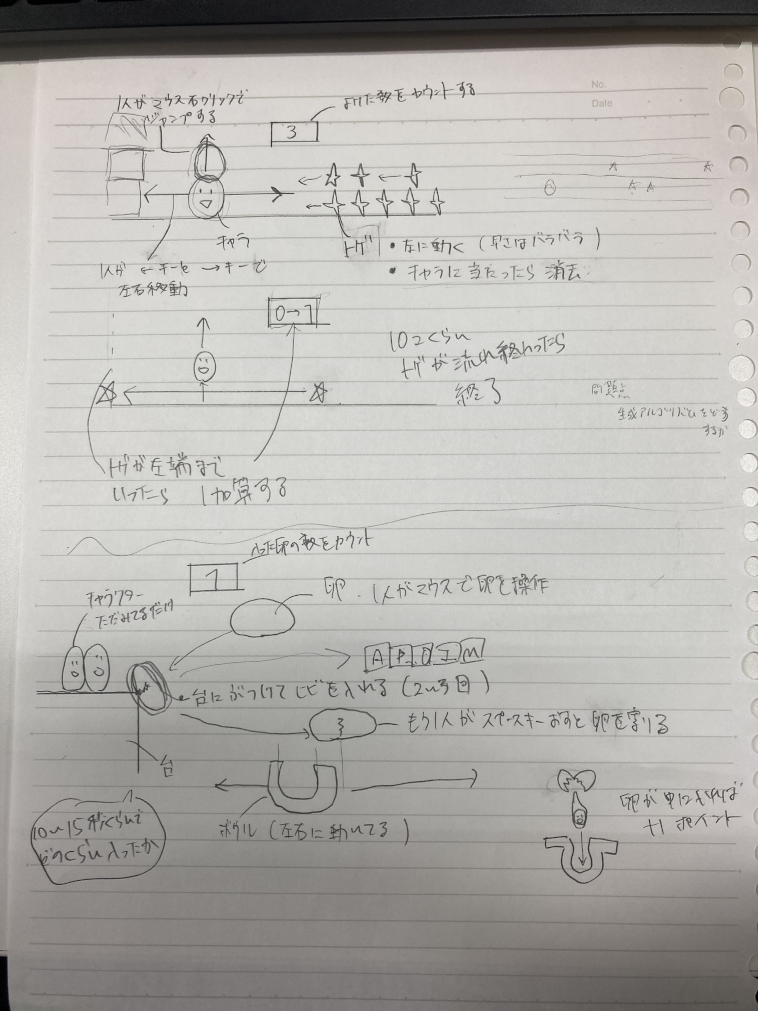 No.
Date
1人がマウス右クリックで
ジャンプする
よけた数をカウントする
3
キャラ
トゲ
・左に動く(早さはバラバラ)
・キャラに当たったら消去
1人が ←キーと→キーで
左右移動
0→1
10コくらい
トゲが流れ終わったら
終了
問題点
生成アルゴリズムをどう
するか
トゲが左端まで
いったら 1加算する
入った卵の数をカウント
1
キャラクター
ただみてるだけ
卵・1人がマウスで卵を操作
台にぶつけてヒビを入れる(2〜3回)
もう1人がスペースキーおすと卵を割る
台
ボウル(左右に動いてる)
10〜15秒くらいで
どのくらい入ったか
卵が中に入れば
+1 ポイント